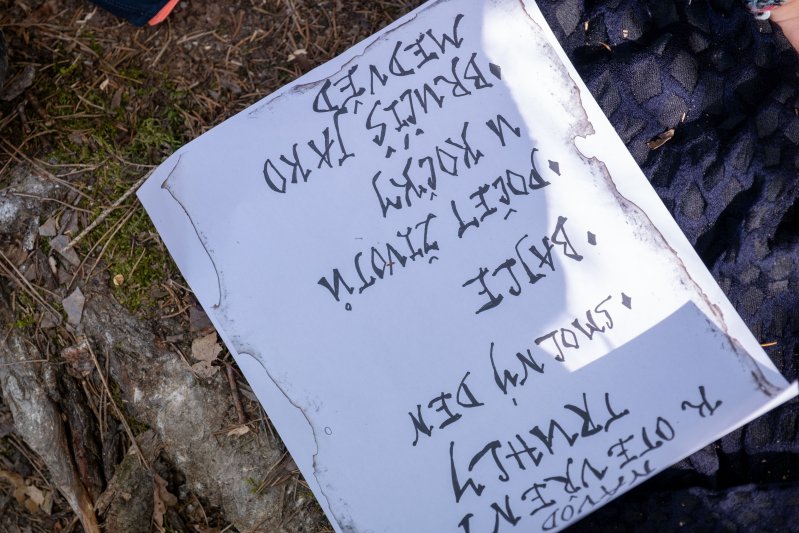 NÁVOD
K OTEVŘENÍ
TRUHLY
♦ SMOLNÝ DEN
♦ BAJCE
♦ POČET ŽIVOTŮ
U KOČKY
♦ BRUČÍŠ JAKO
MEDVĚD